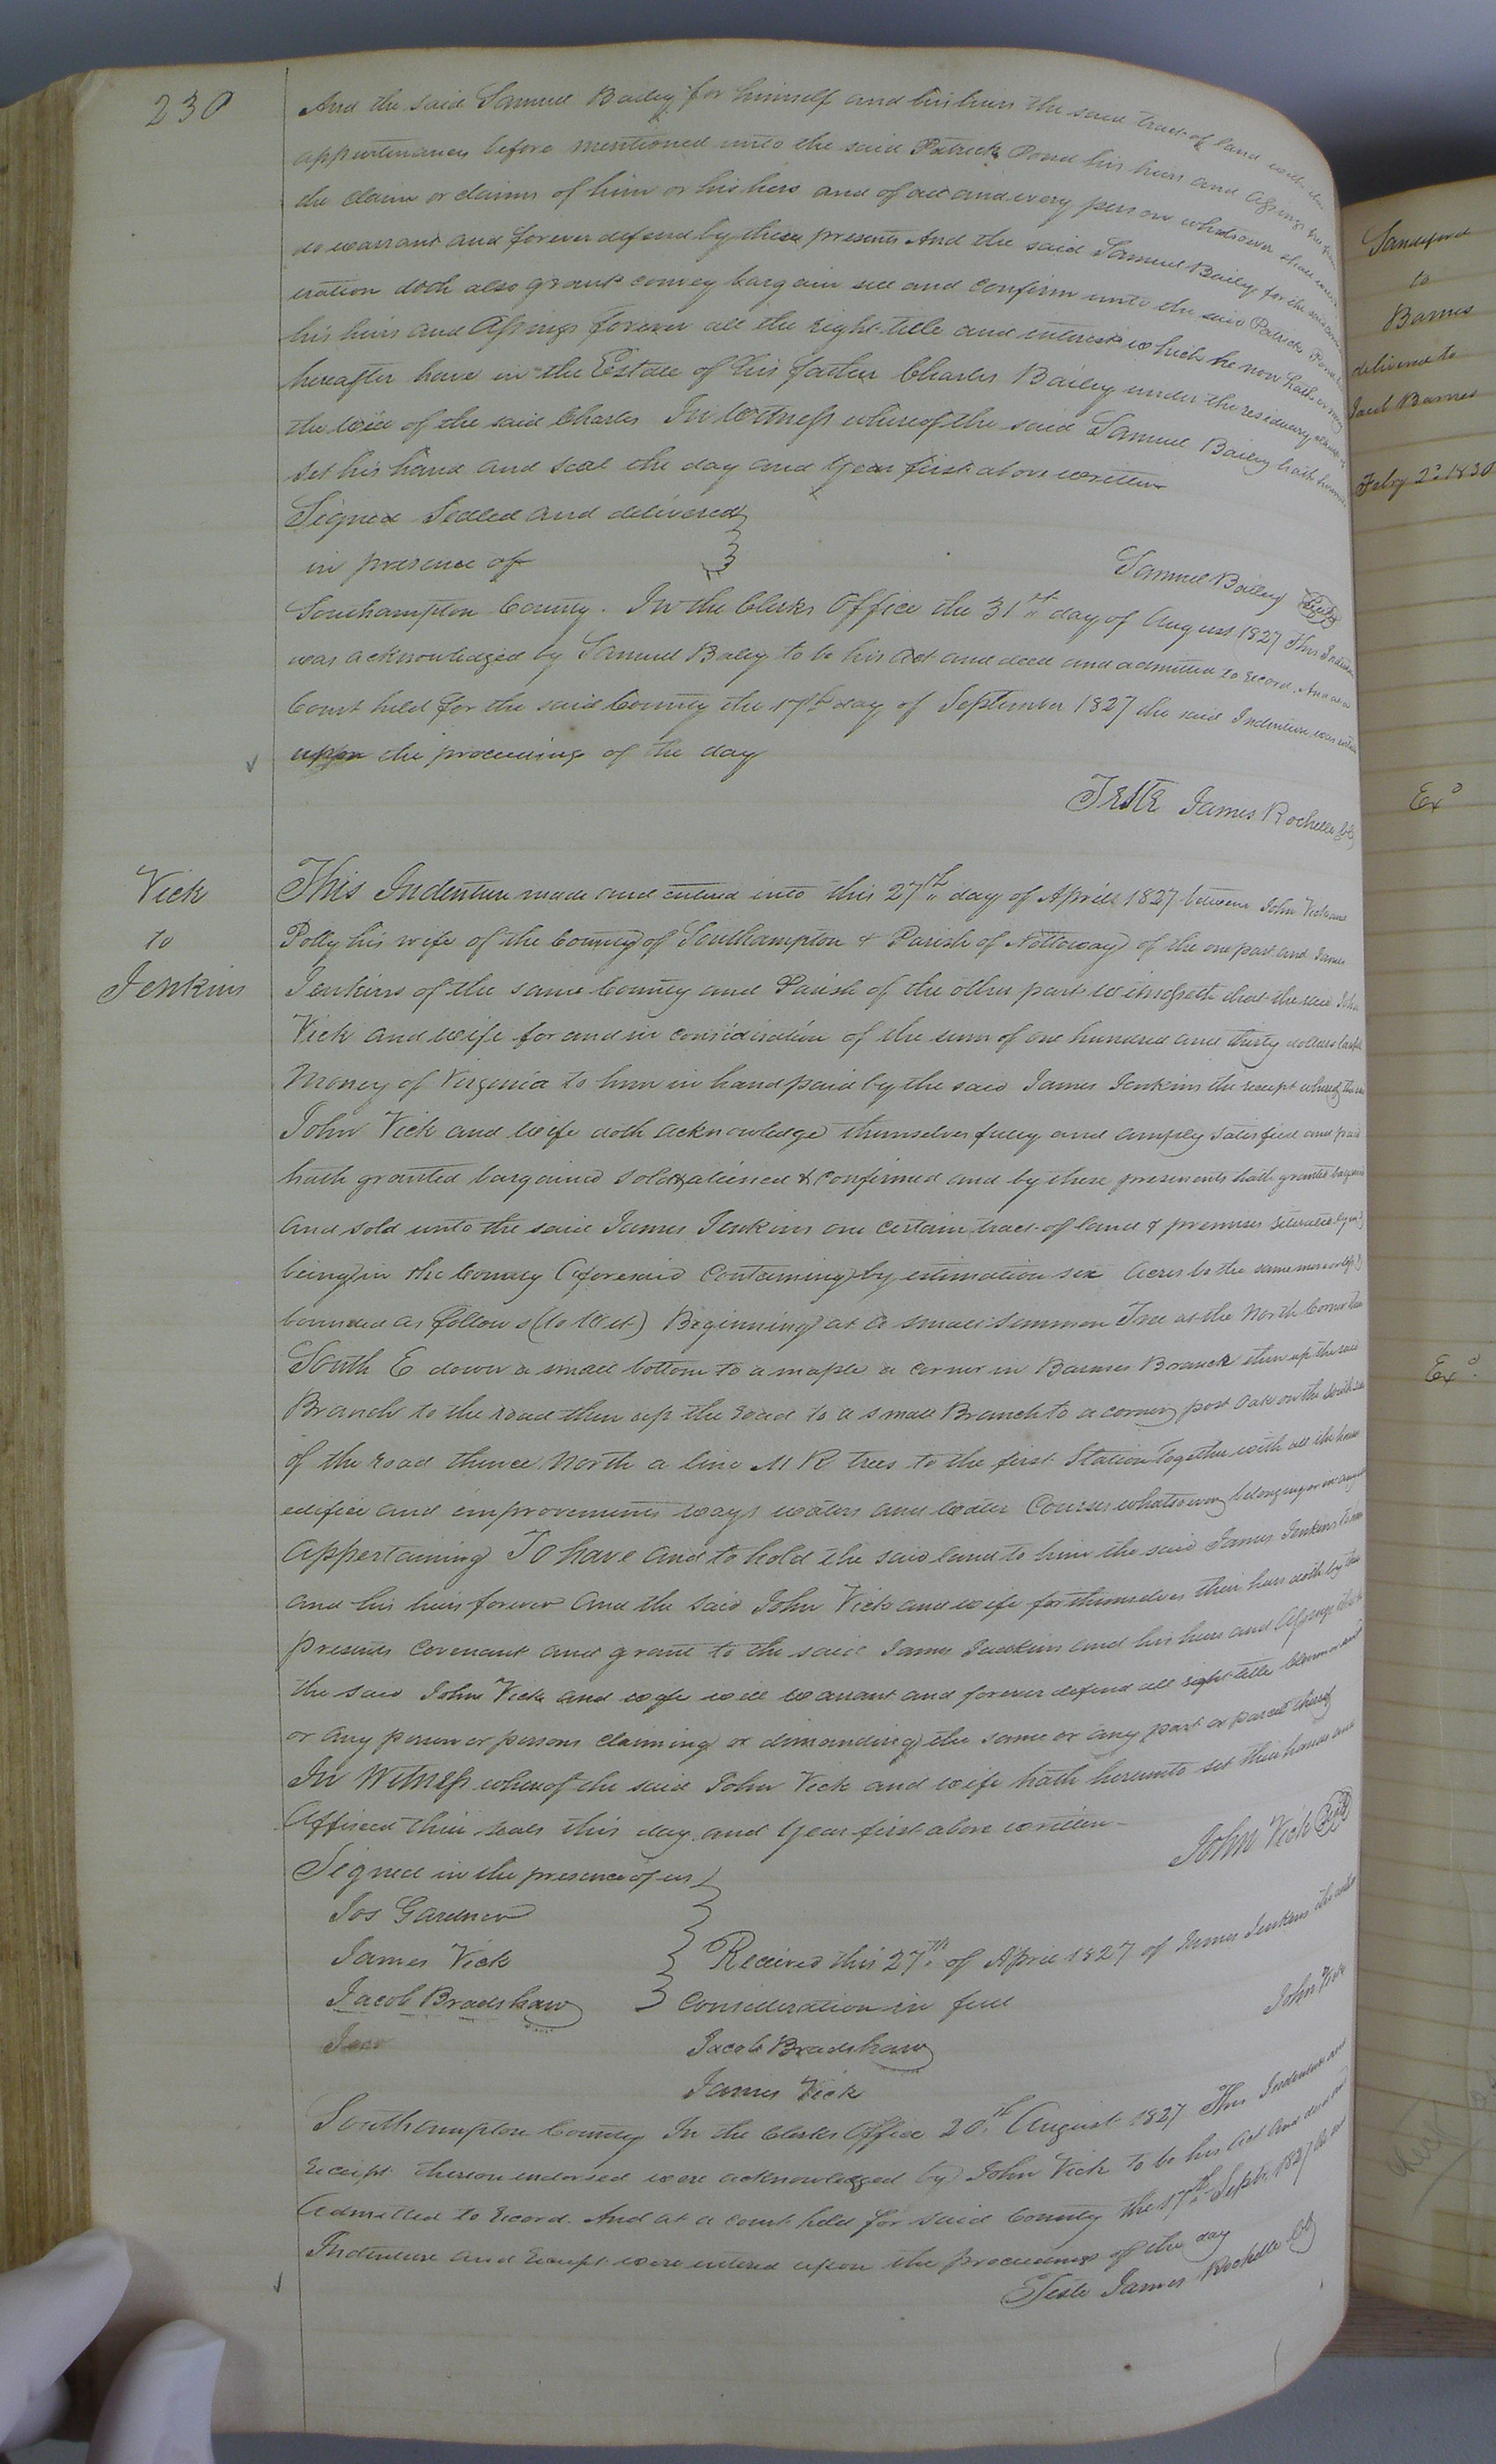 230
And the said Samuel Bailey for himself and his heirs the said tract of land with the
appurtenances before mentioned unto the said Patrick Pond his heirs and Assings free from
the claim or claims of him or his heirs and of all and every person whatsoever shall
do warrant and forever defend by these presents And the said Samuel Bailey for the said
eration doth also grant convey bargain sell and confirm unto the said Patrick Pond
his heirs and Assings forever all the right title and interest which he now hath or may
hereafter have in the Estate of his father Charles Bailey under the residuary clause of
the will of the said Charles In Witness whereof the said Samuel Bailey hath hereunto
set his hand and seal the day and year first above written
Signed Sealed and delivered
in presence of
Samuel Bailey Seal
Southampton County. In the Clerks Office the 31st day of August 1827 This Indenture
was acknowledged by Samuel Baley to be his act and deed and admitted to record. And at a
Court held for the said County the 17th day of September 1827 the said Indenture was
upon the proceedings of the day
Teste James Rochelle CC
Vick
to
Jenkins
This Indenture made and entered into this 27th day of Aprill 1827 between John Vick and
Polly his wife of the County of Southampton & Parish of Nottoway of the one part and James
Jenkins of the same County and Parish of the other part witnesseth that the said John
Vick and wife for and in consideration of the sum of one hundred and thirty dollars lawful
Money of Virginia to him in hand paid by the said James Jenkins the receipt whereof the said
John Vick and wife doth acknowledge themselves fully and amply satisfied and paid
hath granted bargained sold & aliened & confirmed and by these presents hath granted bargained
and sold unto the said James Jenkins one certain tract of land & premises situate lying &
being in the County aforesaid Containing by estimation six Acres be the same more or less
bounded as follows (to Wit) Beginning at a small Simmon Tree at the North Corner Then
South E down a small bottom to a maple a corner in Barnes Branch then up the said
Branch to the road then up the road to a small Branch to a corner post oak on the South side
of the road thence North a line M R trees to the first Station Together with all the houses
edifices and improvements ways waters and water Courses whatsoever belonging or in anywise
Appertaining To have and to hold the said land to him the said James Jenkins to him
and his heirs forever And the said John Vick and wife for themselves their heirs doth by these
presents Covenant and grant to the said James Jenkins and his heirs and Assings that
the said John Vick and wife will warrant and forever defend all right title
or any person or persons claiming or demanding the same or any part or parcel thereof
In Witness whereof the said John Vick and wife hath hereunto set their hands and
Affixed their seals this day and year first above written
John Vick Seal
Signed in the presence of us
Jos Gardner
James Vick
Jacob Bradshaw
Received this 27th of April 1827 of James Jenkins the within
Consideration in full
John Vick
Jacob Bradshaw
James Vick
Southampton County In the Clerks Office 20th August 1827 This Indenture and
Receipt thereon endorsed were acknowledged by John Vick to be his act and deed and
Admitted to record. And at a Court held for said County the 17th Septr. 1827 the said
Indenture and Receipt were entered upon the proceedings of the day
Teste James Rochelle CC
Sandiford
to
Barnes
delivered to
Jacob Barnes
Feby 2d 1830
Exd
Exd.